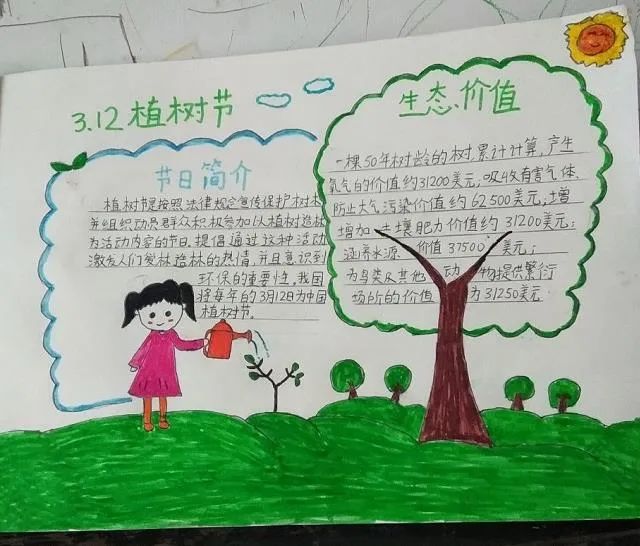 3.12植树节
节日简介
植树节是按照法律规定宣传保护树木
并组织动员群众积极参加以植树造林
为活动内容的节日。提倡通过这种活动
激发人们爱林造林的热情,并且意识到
环保的重要性。我国
将每年的3月12日为中国
植树节。
生态价值
一棵50年树龄的树,累计计算,产生
氧气的价值约31200美元;吸收有害气体、
防止大气污染价值约62500美元;增
增加土壤肥力价值约31200美元;
涵养水源价值37500美元;
为鸟类及其他动物提供繁衍
场所的价值为31250美元